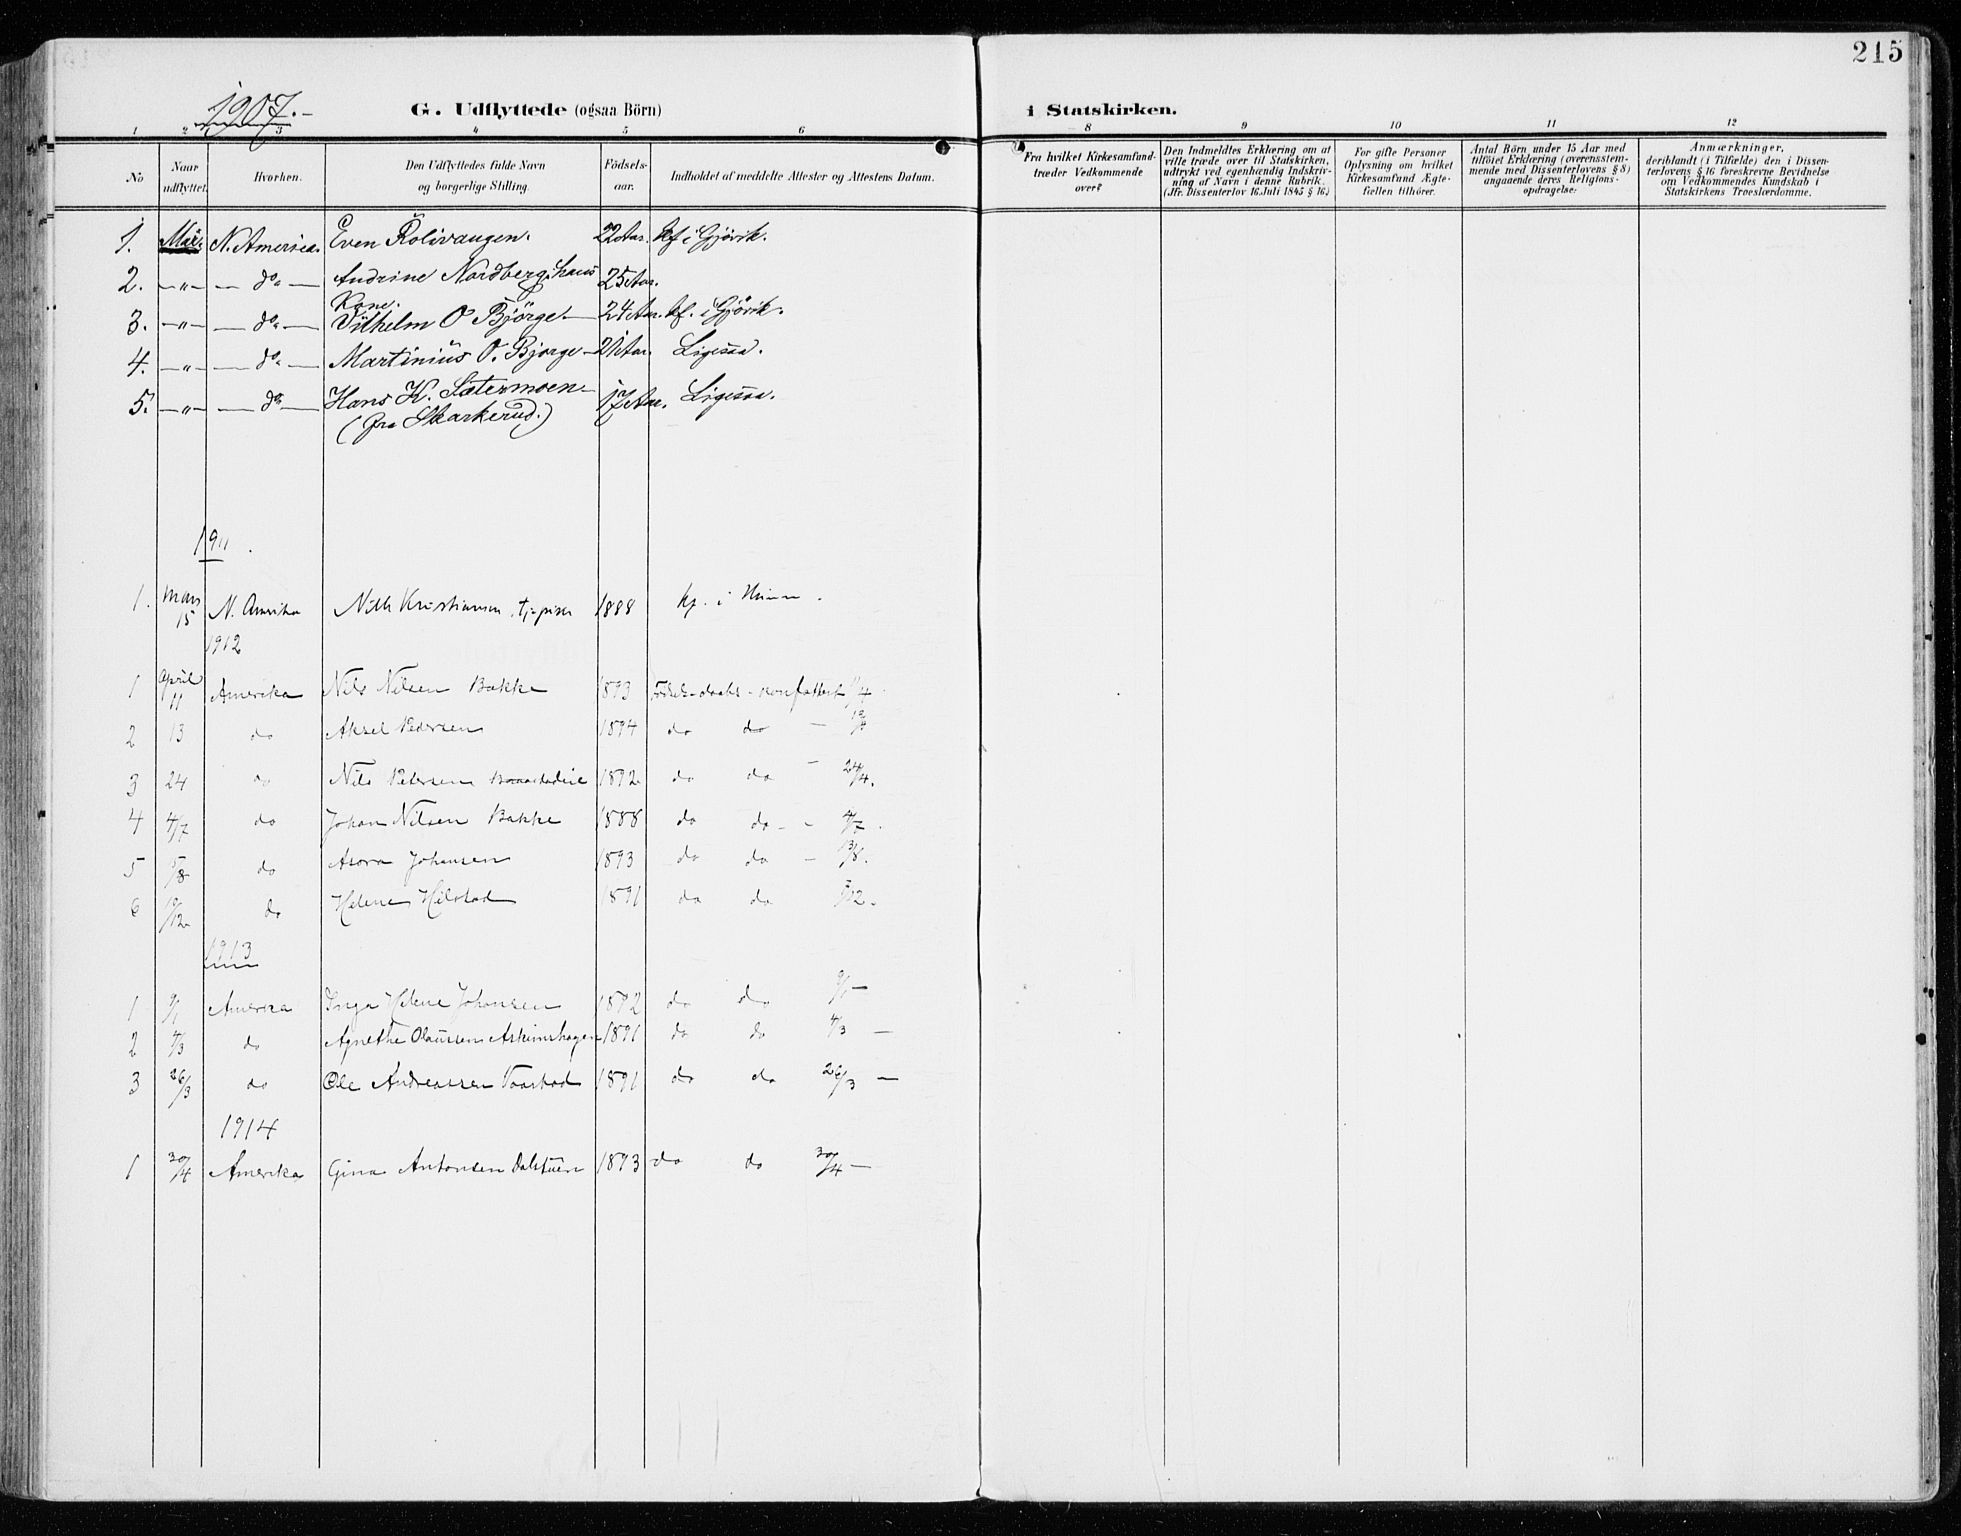 215
1907.-
G. Udflyttede (ogsaa Börn)
i Statskirken.
1 2 3 4 5 6 8 9 10 11 12
No
Naar udflyttet.
Hvorhen.
Den Udflyttedes fulde Navn og borgerlige Stilling.
Födsels-aar.
Indholdet af meddelte Attester og Attestens Datum.
Fra hvilket Kirkesamfund træder Vedkommende over?
Den Indmeldtes Erklæring om at ville træde over til Statskirken, udtrykt ved egenhændig Indskrivning af Navn i denne Rubrik. (Jfr. Dissenterlov 16. Juli 1845 § 16.)
For gifte Personer Oplysning om hvilket Kirkesamfund Ægtefællen tilhörer.
Antal Börn under 15 Aar med tilföiet Erklæring (overensstemmende med Dissenterlovens § 8) angaaende deres Religionsopdragelse.
Anmærkninger, deriblandt (i Tilfælde) den i Dissenterlovens § 16 foreskrevne Bevidnelse om Vedkommendes Kundskab i Statskirkens Troeslærdomme.
1. Mai. N. America. Even Rolivangen. 22 Aar. kf i Gjövik.
2. -"- — do — Andrine Nordberg, hans Kone. 25 Aar.
3. -"- — do — Vilhelm O Björge — 24 Aar. kf. i Gjövik.
4. -"- — do — Martinius O. Bjorge — 21 Aar. Ligesaa.
5. -"- — do — Hans K. Sætermoen — 17 Aar. Ligesaa.
(fra Skarkerud.)
1911.
1. Mars 15 N. Amerika Kristiansen, 1888 kf. i
1912
1 April 11 Amerika Nils Nilsen Bakke 1893 Födsels-daabs-konfattest 11/4.
2 13 do Aksel Pedersen 1894 do do -
3 24 do Nils Petersen 1892 do do - 24/4.
4 4/7 do Johan Nilsen Bakke 1888 do do - - 4/7.
5 do Johansen 1893 do do - 13/8.
6 do Helene 1891 do do
1913
1 9/1 America Inga Helene Johansen 1892 do do 9/1 —
2 4/3 do Agnethe Olaussen Askimshagen 1891 do do 4/3 —
3 26/3 do Ole Andreassen 1891 do do 26/3 —
1914
1 30/4 Amerika Gina Antonsen Dalstuen 1893 do do 30/4 —